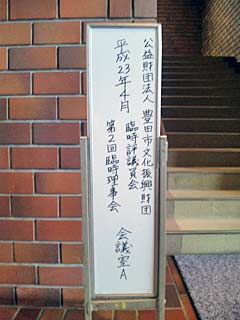 公益財団法人 豊田市文化振興財団
平成23年4月 臨時評議員会
第2回臨時理事会
会議室A